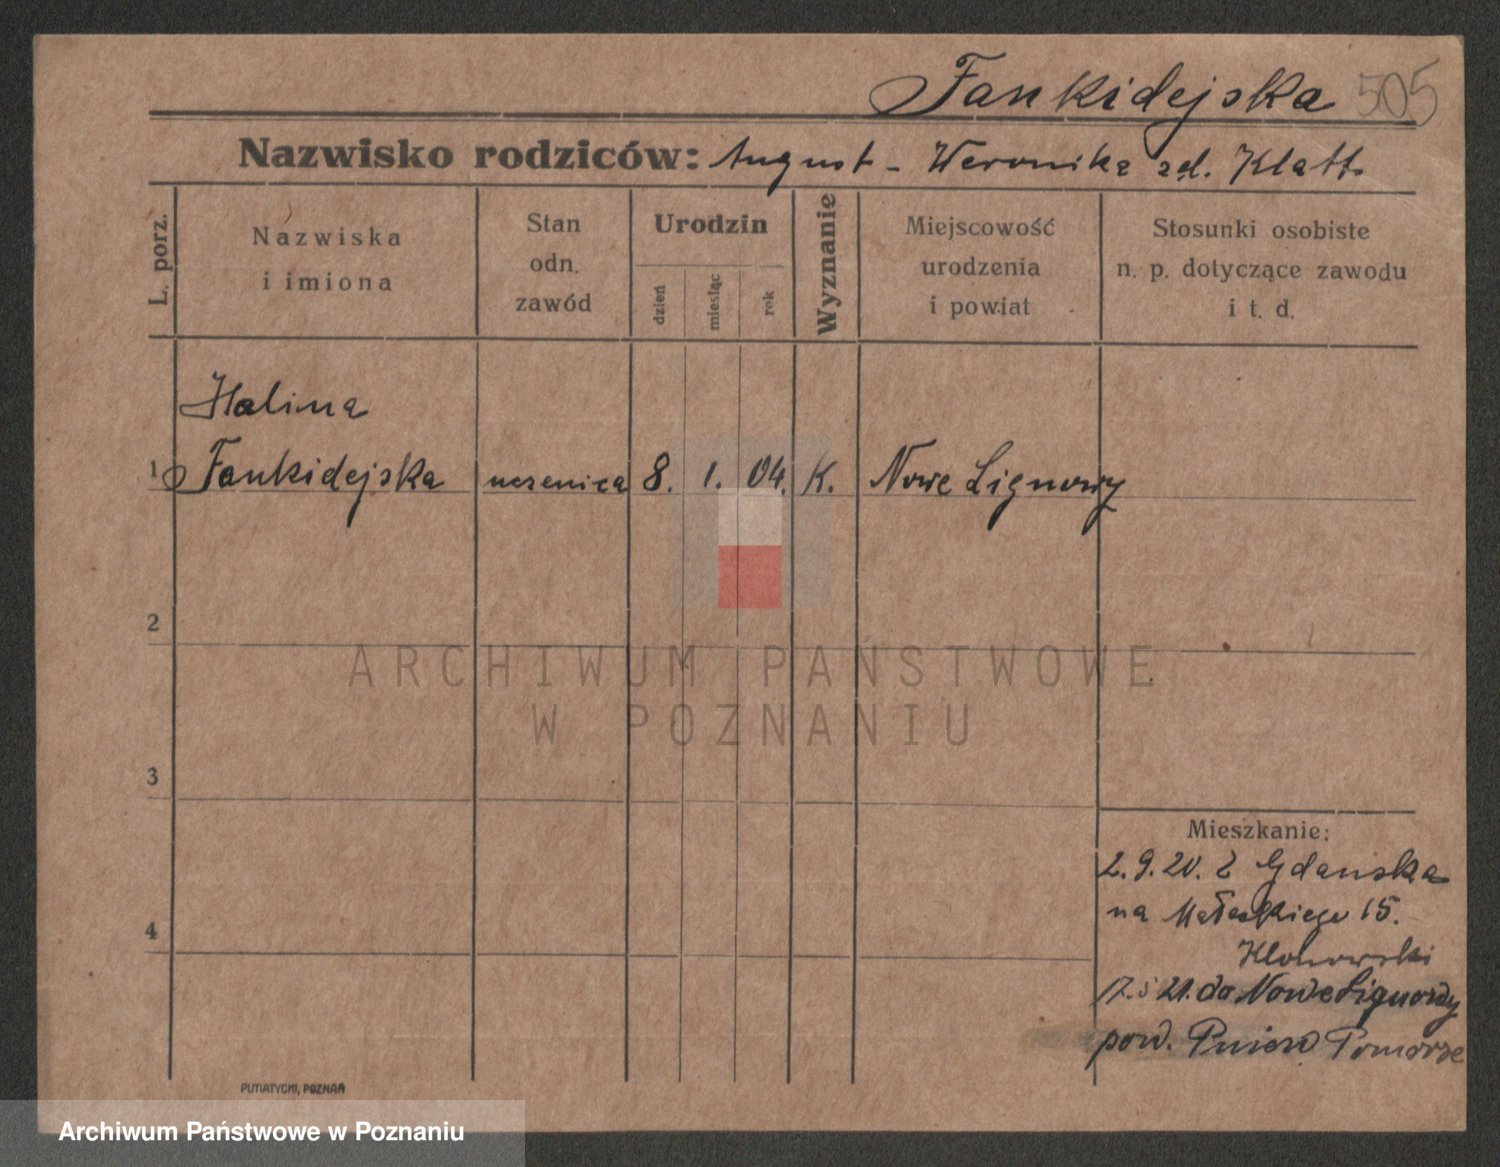 Fankidejska 505
Nazwisko rodziców: August - Weronika zd. Klatt.
L. porz.
Nazwiska
i imiona
Stan
odn.
zawód
Urodzin
dzień
miesiąc
rok
Wyznanie
Miejscowość
urodzenia
i powiat
Stosunki osobiste
n. p. dotyczące zawodu
i t. d.
Halina
1 Fankidejska uczenica 8. 1. 04. K. Nowe Lignowy
2
ARCHIWUM PAŃSTWOWE
W POZNANIU
3
Mieszkanie:
2. 9. 20. z Gdańska
na Małeckiego 15.
4
17. 5 21. do Nowe Lignowy
pow. Gniew Pomorze
PUTIATYCKI, POZNAŃ
Archiwum Państwowe w Poznaniu